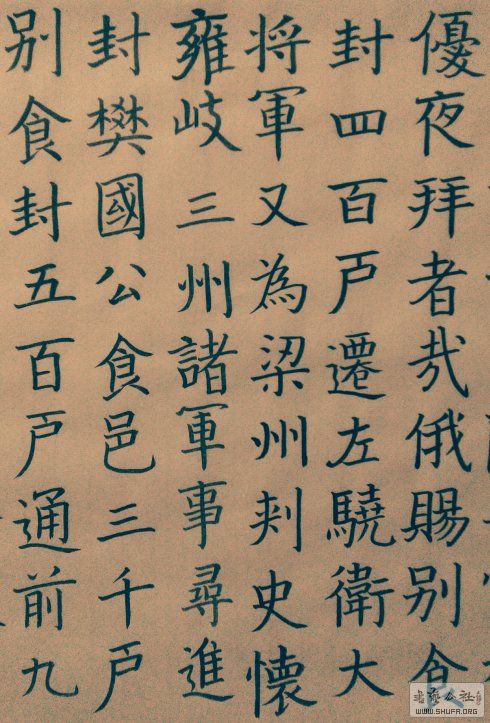 優夜拜者哉俄賜别食
封四百戸遷左驍衛大
将軍又為梁州刺史懷
雍岐三州諸軍事尋進
封樊國公食邑三千戸
别食封五百戸通前九
WWW.SHUFA.ORG